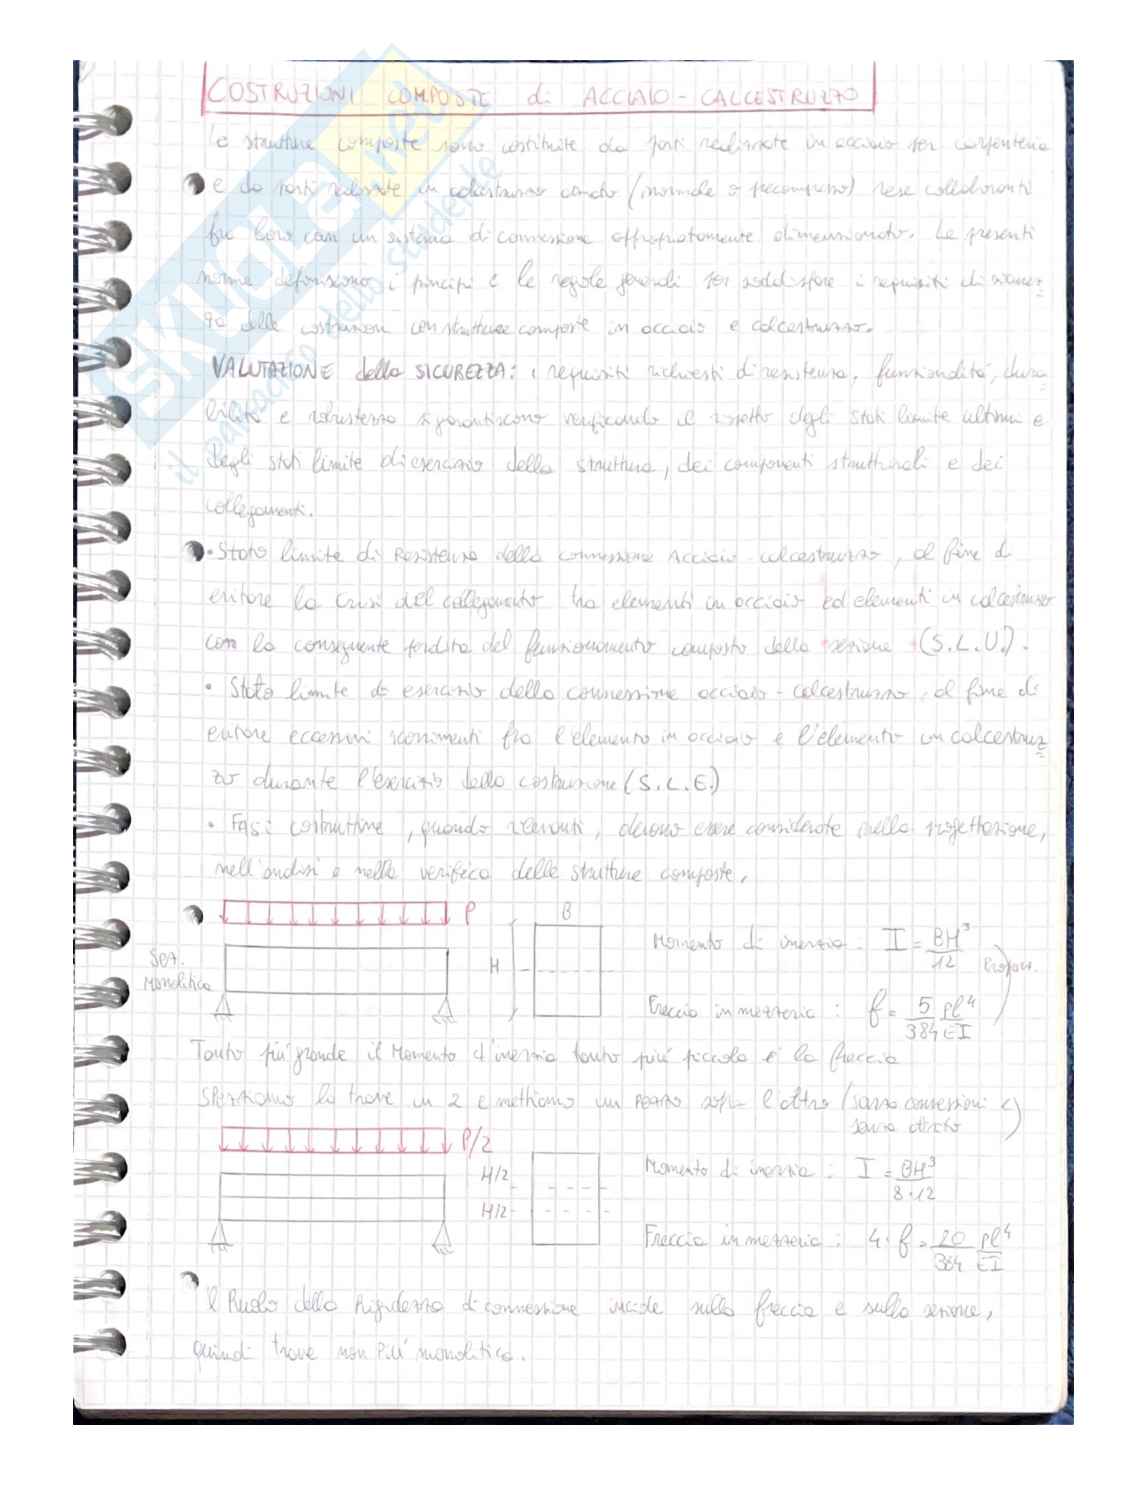 COSTRUZIONI COMPOSTE di ACCIAIO-CALCESTRUZZO
Le strutture composte sono costituite da parti realizzate in acciaio per carpenteria
e da parti realizzate in calcestruzzo armato (normale o precompresso) rese collaboranti
fra loro con un sistema di connessione appropriatamente dimensionato. Le presenti
norme definiscono i principi e le regole generali per soddisfare i requisiti di sicurez=
za delle costruzioni con strutture composte in acciaio e calcestruzzo.
VALUTAZIONE della SICUREZZA: i requisiti richiesti di resistenza, funzionalità, dura
bilità e robustezza si garantiscono verificando il rispetto degli stati limite ultimi e
degli stati limite di esercizio della struttura, dei componenti strutturali e dei
collegamenti.
• Stato limite di Resistenza della connessione Acciaio-calcestruzzo, al fine di
evitare la crisi del collegamento tra elementi in acciaio ed elementi in calcestruzzo
con la conseguente perdita del funzionamento composto della sezione (S.L.U.).
• Stato limite di esercizio della connessione acciaio-calcestruzzo, al fine di
evitare eccessivi scorrimenti fra l'elemento in acciaio e l'elemento in calcestruz=
zo durante l'esercizio della costruzione (S.L.E.)
• Fasi costruttive, quando rilevanti, devono essere considerate nella progettazione,
nell'analisi e nella verifica delle strutture composte.
P
B
H
Sez.
Monolitica
Momento di inerzia: I = BH³/12
Freccia in mezzeria: f = 5/384 pl⁴/EI
Tanto più grande il Momento d'inerzia tanto più piccola è la freccia
Spezziamo la trave in 2 e mettiamo un pezzo sopra l'altro (senza connessioni e
senza attrito)
P/2
H/2
H/2
Momento di inerzia: I = BH³/8·12
Freccia in mezzeria: 4·f = 20/384 pl⁴/EI
Il Ruolo della Rigidezza di connessione incide sulla freccia e sulla sezione,
quindi trave non più monolitica.
SKUOLA.net
il paradiso dello studente